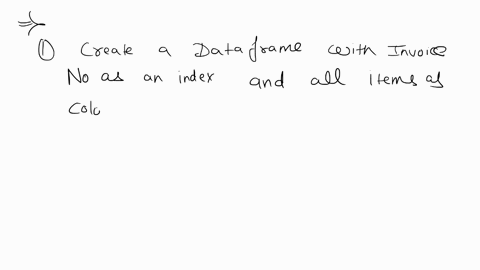 ⇒
① Create a Dataframe with Invoice
No as an index and all items as
Colu